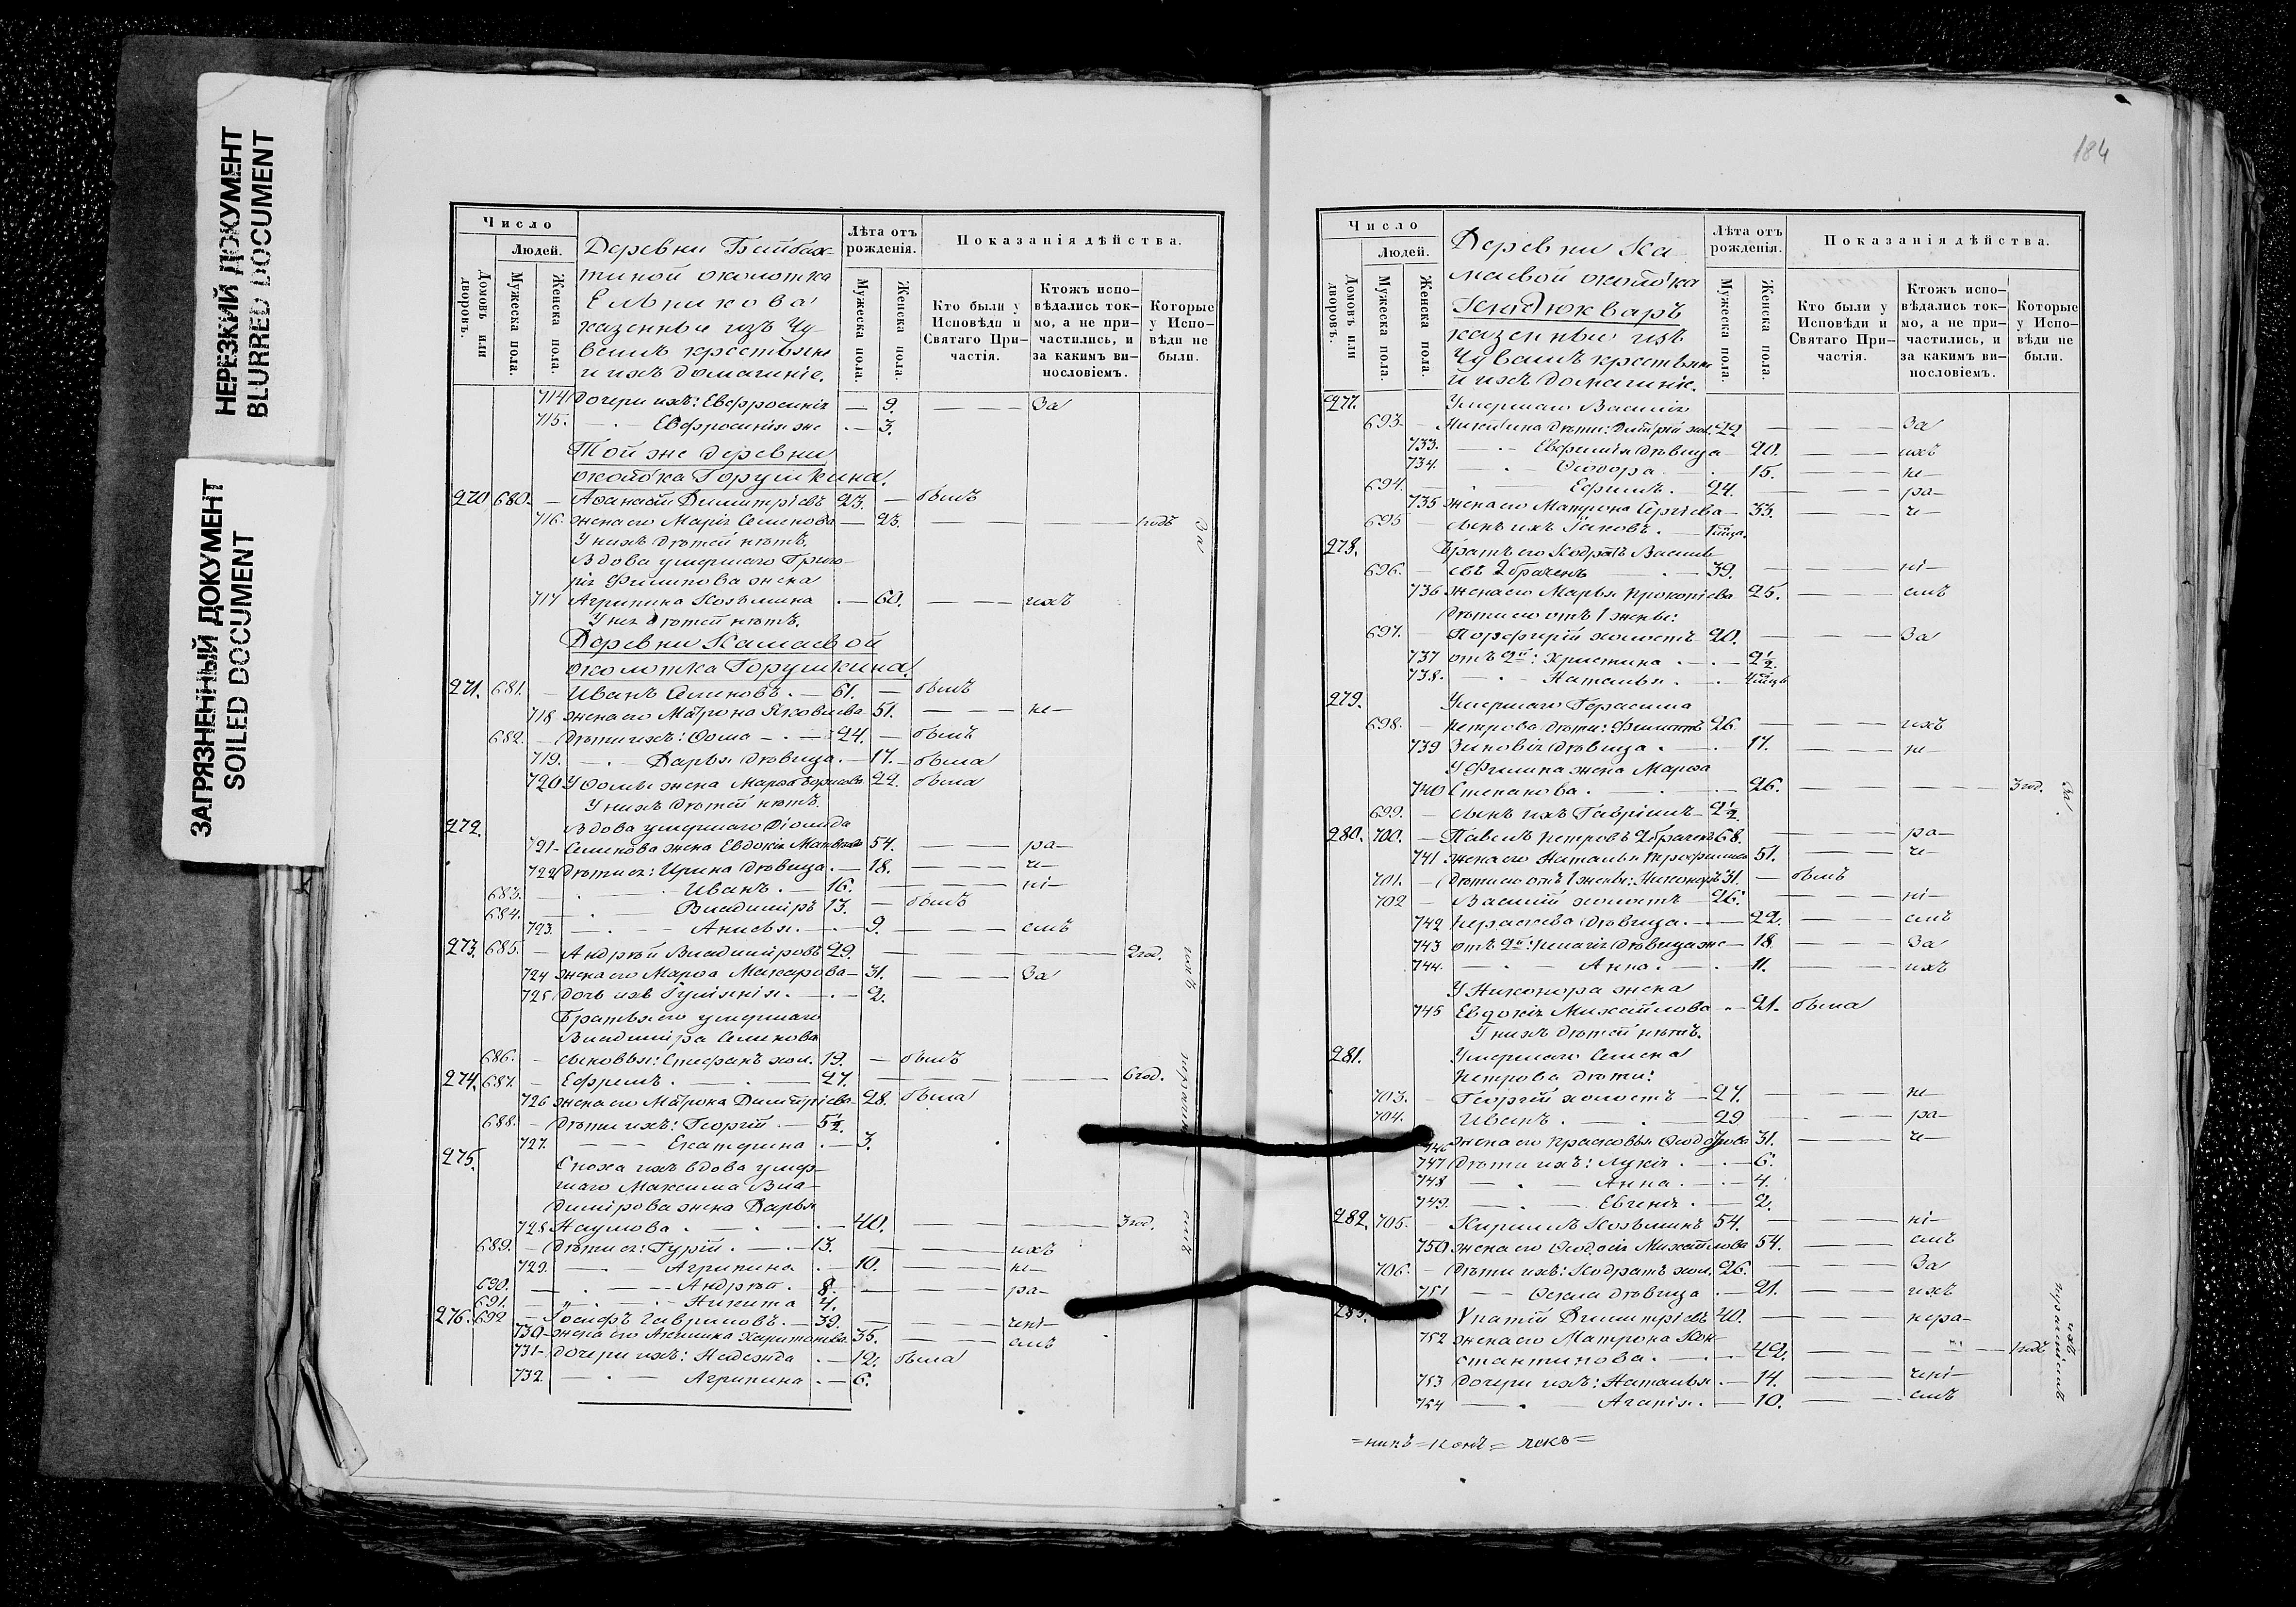 НЕРЕЗКИЙ ДОКУМЕНТ
BLURRED DOCUMENT
ЗАГРЯЗНЕННЫЙ ДОКУМЕНТ
SOILED DOCUMENT
Число
Людей.
Домовъ или дворовъ.
Мужеска пола.
Женска пола.
Деревни Байбах-
тиной околотка
Ельникова
казенные изъ Чу-
вашъ крестьяне
и ихъ домашніе.
Лѣта отъ рожденія.
Мужеска пола.
Женска пола.
Показанія дѣйства.
Кто были у Исповѣди и Святаго При-частія.
Ктожъ испо-вѣдались ток-мо, а не при-частились, и за какимъ ви-нословіемъ.
Которые у Испо-вѣди не были.
714 Дочери ихъ: Евфросинія — 9. — — — За
715. — · — Евфросинія же · — 3.
Той же деревни
околотка Горушкина.
270 680. — Аѳанасій Димитріевъ 23. — былъ
716. жена его Марія Семенова — 23. — — — годъ За
У нихъ дѣтей нѣтъ.
Вдова умершаго Григо-
рія Филипова жена
717 Агрипина Козьмина · — 60. — — — ихъ
У нея дѣтей нѣтъ.
Деревни Камаевой
околотка Горушкина.
271. 681. — Иванъ Семеновъ. — 61. — былъ
718 жена его Матрона Яковлева 51. — — — не—
682. — Дѣти ихъ: Ѳома — · — 24. — былъ
719. — · — Дарья дѣвица. — 17. — была
720 У Ѳомы жена Марѳа Борисова 22. была
У нихъ дѣтей нѣтъ.
272. Вдова умершаго Діомида
721 Семенова жена Евдокія Матвѣева 54. — — ра—
722 Дѣти ея: Ирина дѣвица. — 18. — — че—
683. — · — Иванъ. — 16. — — — ні—
684. — · — Владиміръ 13. — былъ
723. — · — Анисья. — · 9. — — — емъ
273. 685. — Андрей Владиміровъ 29. — — — 2год.
724 жена его Марѳа Макарова — 31. — — — За
725 Дочь ихъ Іуліянія. — · — 2.
Братья его умершаго
Владиміра Семенова
686. — сыновья: Стефанъ хол. 19. — былъ
274. 687. — Ефремъ. — · — 27. — — — 6год.
726 жена его Матрона Димитріева 28. была
688. — Дѣти ихъ: Георгій. — 5½.
727. — — — Екатерина. — 3.
275. Сноха ихъ вдова умер-
шаго Максима Вла-
димірова жена Дарья
728 Наумова. — · — · — 40. — — — 3год.
689. — Дѣти ея: Гурій. — 13. — — ихъ
729. — · — Агрипина · — 10. — — не—
690. — · — Андрей. · 8. — — ра—
691. — · — Никита 4.
276. 692 — Іосифъ Гавриловъ. — 39. — — — чені—
730 жена его Акилина Харитонова 35. — — емъ
731 Дочери ихъ: Надежда · — 12. была
732. — · — Агрипина · — 6.
184
Число
Людей.
Домовъ или дворовъ.
Мужеска пола.
Женска пола.
Деревни Ка
маевой околотка
казенные изъ
Чувашъ крестьяне
и ихъ домашніе.
Лѣта отъ рожденія.
Мужеска пола.
Женска пола.
Показанія дѣйства.
Кто были у Исповѣди и Святаго При-частія.
Ктожъ испо-вѣдались ток-мо, а не при-частились, и за какимъ ви-нословіемъ.
Которые у Испо-вѣди не были.
277. Умершаго Василія
693. — Никитина дѣти: Димтрій хол. 22 — — За
733. — · — Евфимія дѣвица 20. — — ихъ
734. — · — Ѳеодора. · 15. — — не—
694. — · — Ефремъ. — 24. — — ра—
735 жена его Матрона Сергіева — 33. — — че—
695 — сынъ ихъ Іаковъ. — 1
278. Братъ его Кодратъ Василь
696. — евъ 2 браченъ — · — 39. — — ні—
736 жена его Марья Прокопіева 25. — — емъ
Дѣти его отъ 1 жены:
697. — Порфирій холостъ 20. — — За
737 отъ 2й: Христина · — · — 2½.
738. — · — Наталья. — ·
279. Умершаго Герасима
698. — Петрова дѣти: Филиппъ 26 — — ихъ
739 Зиновія дѣвица. — · — 17. — — не—
У Филипа жена Марѳа
740 Степанова. — · — 26. — — — 3год. За
699. — сынъ ихъ Гавріилъ — 2½
280. 700. — Павелъ Петровъ 2 браченъ 68. — — ра—
741 жена его Наталья Трофимова 51. — — че—
701. — Дѣти его отъ 1 жены: Никаноръ 31. — былъ
702 — Василій холостъ — 26. — — ні—
742 Параскева дѣвица. — 22. — — емъ
743 отъ 2й: Пелагія дѣвица же — 18. — — За
744. — · — Анна. — · 11. — — ихъ
У Никанора жена
745 Евдокія Михайлова · — 21. была
У нихъ дѣтей нѣтъ.
281. Умершаго Семена
Петрова дѣти:
703. — Георгій холостъ — 27. — — не—
704. Иванъ. — · 29 — — ра—
746 жена его Прасковья Ѳеодорова 31. — — че—
747 Дѣти ихъ: Лукія. — · — 6.
748 — · — Анна. — · — 4.
749. — · — Евгенія. — 2.
282. 705. — Кириллъ Козьминъ 54. — — ні—
750 жена его Ѳеодосія Михайлова 54. — — емъ
706. — Дѣти ихъ: Кодратъ хол. 26. — — За
751 — — дѣвица · — 21. — — ихъ
283. Ипатій Димитріевъ 40. — — нера—
752 жена его Матрона Кон-
стантинова. — · — 42. — — — годъ
753 Дочери ихъ: Наталья. — 14. — — чені—
754 — · — Агапія. — 10. — — емъ